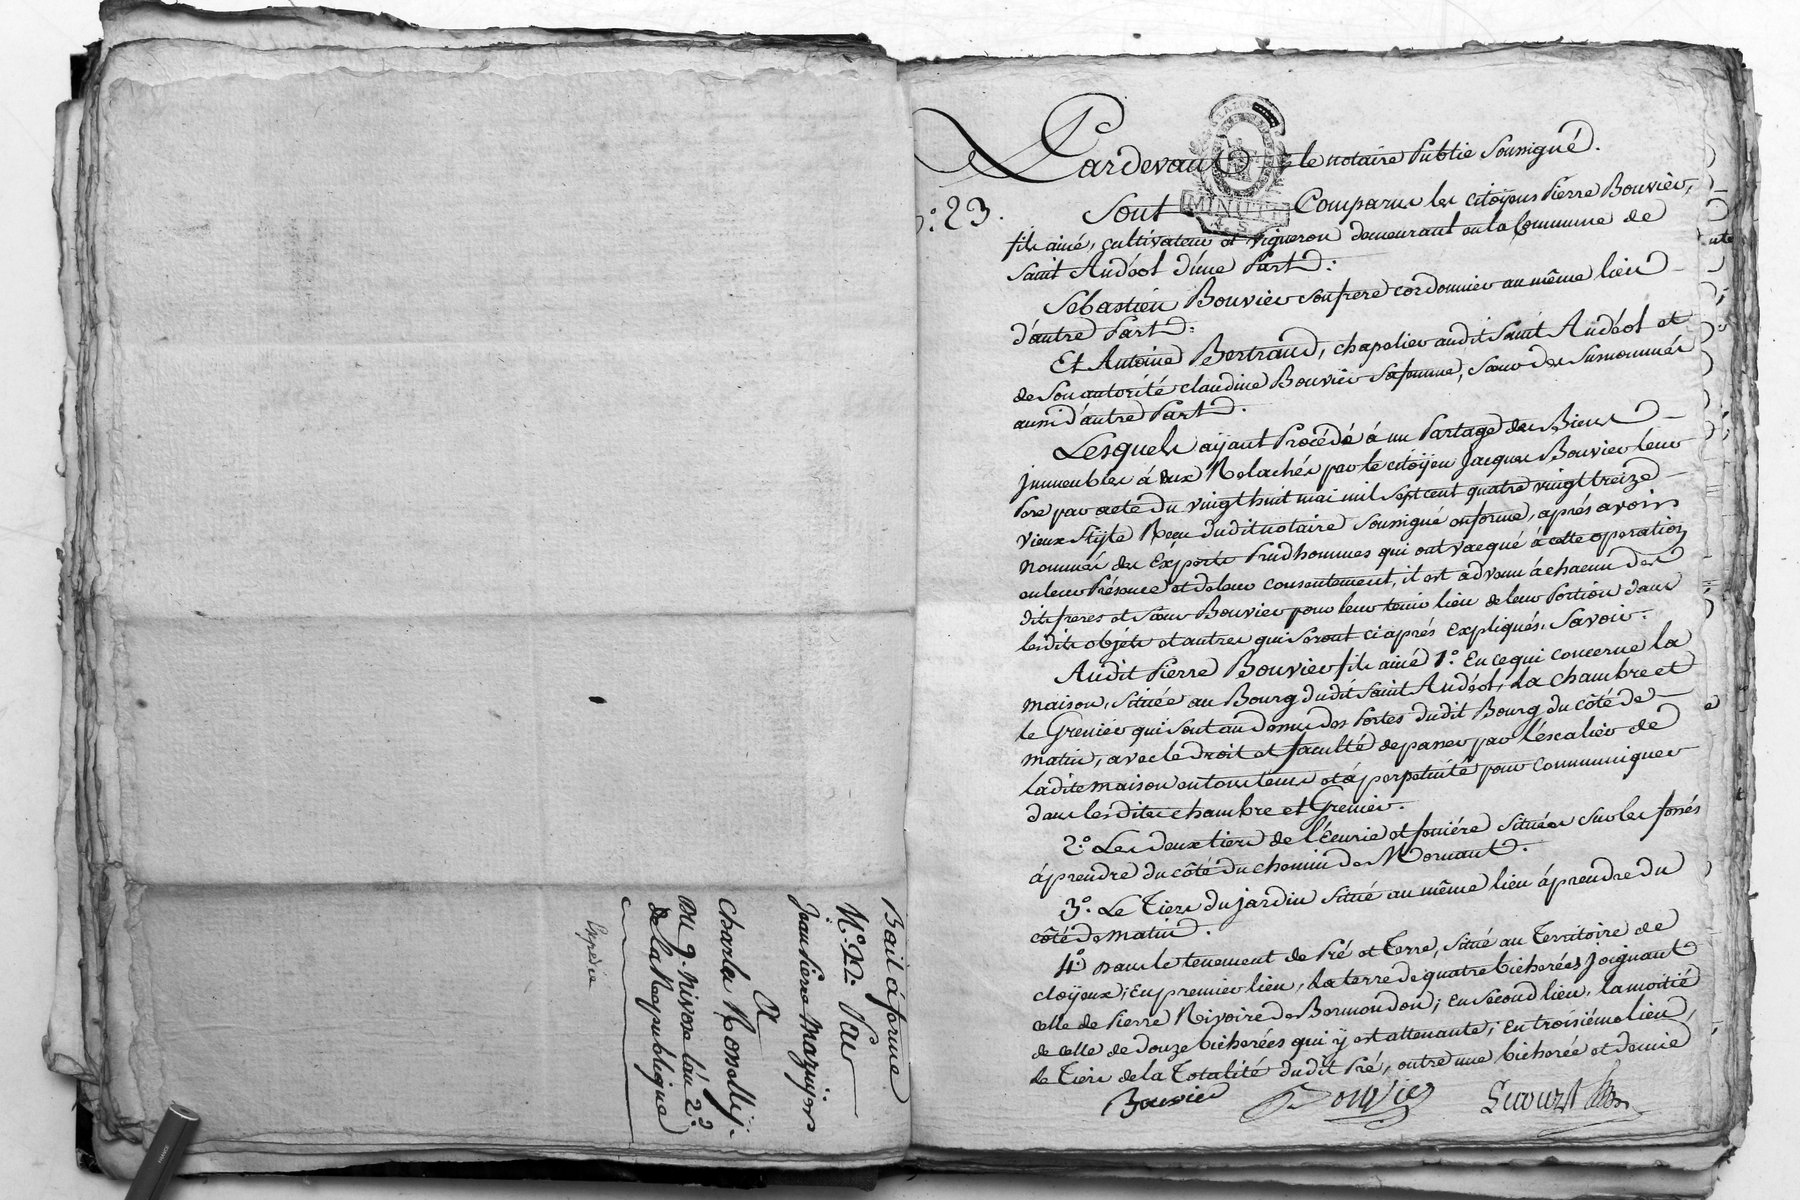 Bail à ferme
N.° 22. Par
Jean Pierre Magnin
A
Charles Rosselly.
Du 9. Nivose l'an 2.e
de la République
Expédié
Pardevant le notaire Public Soussigné.
N.° 23.
Sont Comparus les citoÿens Pierre Bouvier,
fils ainé, cultivateur et vigneron demeurant en la Commune de
Saint Andéol d'une Part:
Sébastien Bouvier son frere cordonnier au même lieu
d'autre Part:
Et Antoine Bertrand, chapelier audit Saint Andéol et
de Son autorité claudine Bouvier Sa femme, Sœur des Surnommés
aussi d'autre Part.
Lesquels aÿant Procédé à un Partage des Biens
jmmeubles à eux Relachés par le citoÿen Jacques Bouvier leur
Pere par acte du vingt huit mai mil Sept cent quatre vingt treize
vieux Stÿle Reçu dudit notaire Soussigné en forme, aprés avoir
nommés des Experts Prudhommes qui ont vacqué à cette operation
en leur Présence et de leur consentement, il est advenu à chacun des
dits freres et Sœur Bouvier pour leur tenir lieu de leur Portion dans
lesdits objéts et autres qui Seront ci aprés Expliqués. Savoir.
Audit Pierre Bouvier fils ainé 1.° En ce qui concerne la
maison, Située au Bourg dudit Saint Andéol, La chambre et
le Grenier qui Sont au dessus des Portes dudit Bourg du côté de
matin, avec le droit et faculté de passer par l'éscalier de
ladite maison en tous tems et à perpetuité pour Communiquer
dans lesdites chambre et Grenier.
2.° Les deux tiers de l'Ecurie et feniére Située Sur les fossés
à prendre du côté du chemin de Mornant.
3.° Le Tiers du jardin Situé au même lieu à prendre du
côté de matin.
4.° Dans le tenement de Pré et Terre, Situé au Territoire de
cloÿeux; En premier lieu, La terre de quatre bicherées joignant
celle de Pierre Rivoire de Bermondon; En Second lieu, la moitié
de celle de douze bicherées qui ÿ est attenante; En troisiéme lieu,
Le Tiers de la Totalité dudit Pré, outre une bicherée et demie
Bouvier Bouvier